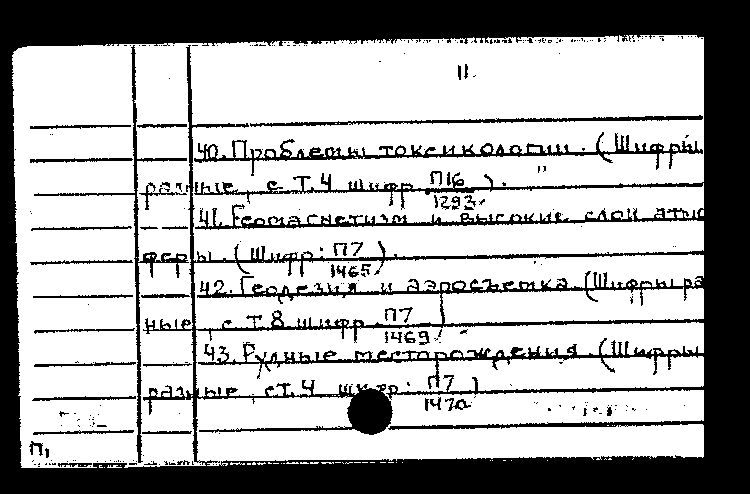 11.
40. Проблемы токсикологии. (Шифры
разные, с Т.4 шифр П16/1293). "
41. Геомагнетизм и высокие слои атмо
феры. (Шифр: П7/1465).
42. Геодезия и аэросъемка (Шифры ра
ные, с Т.8 шифр П7/1469)
43. Рудные месторождения (Шифры
разные, с Т.4 шифр: П7/1470)
П,